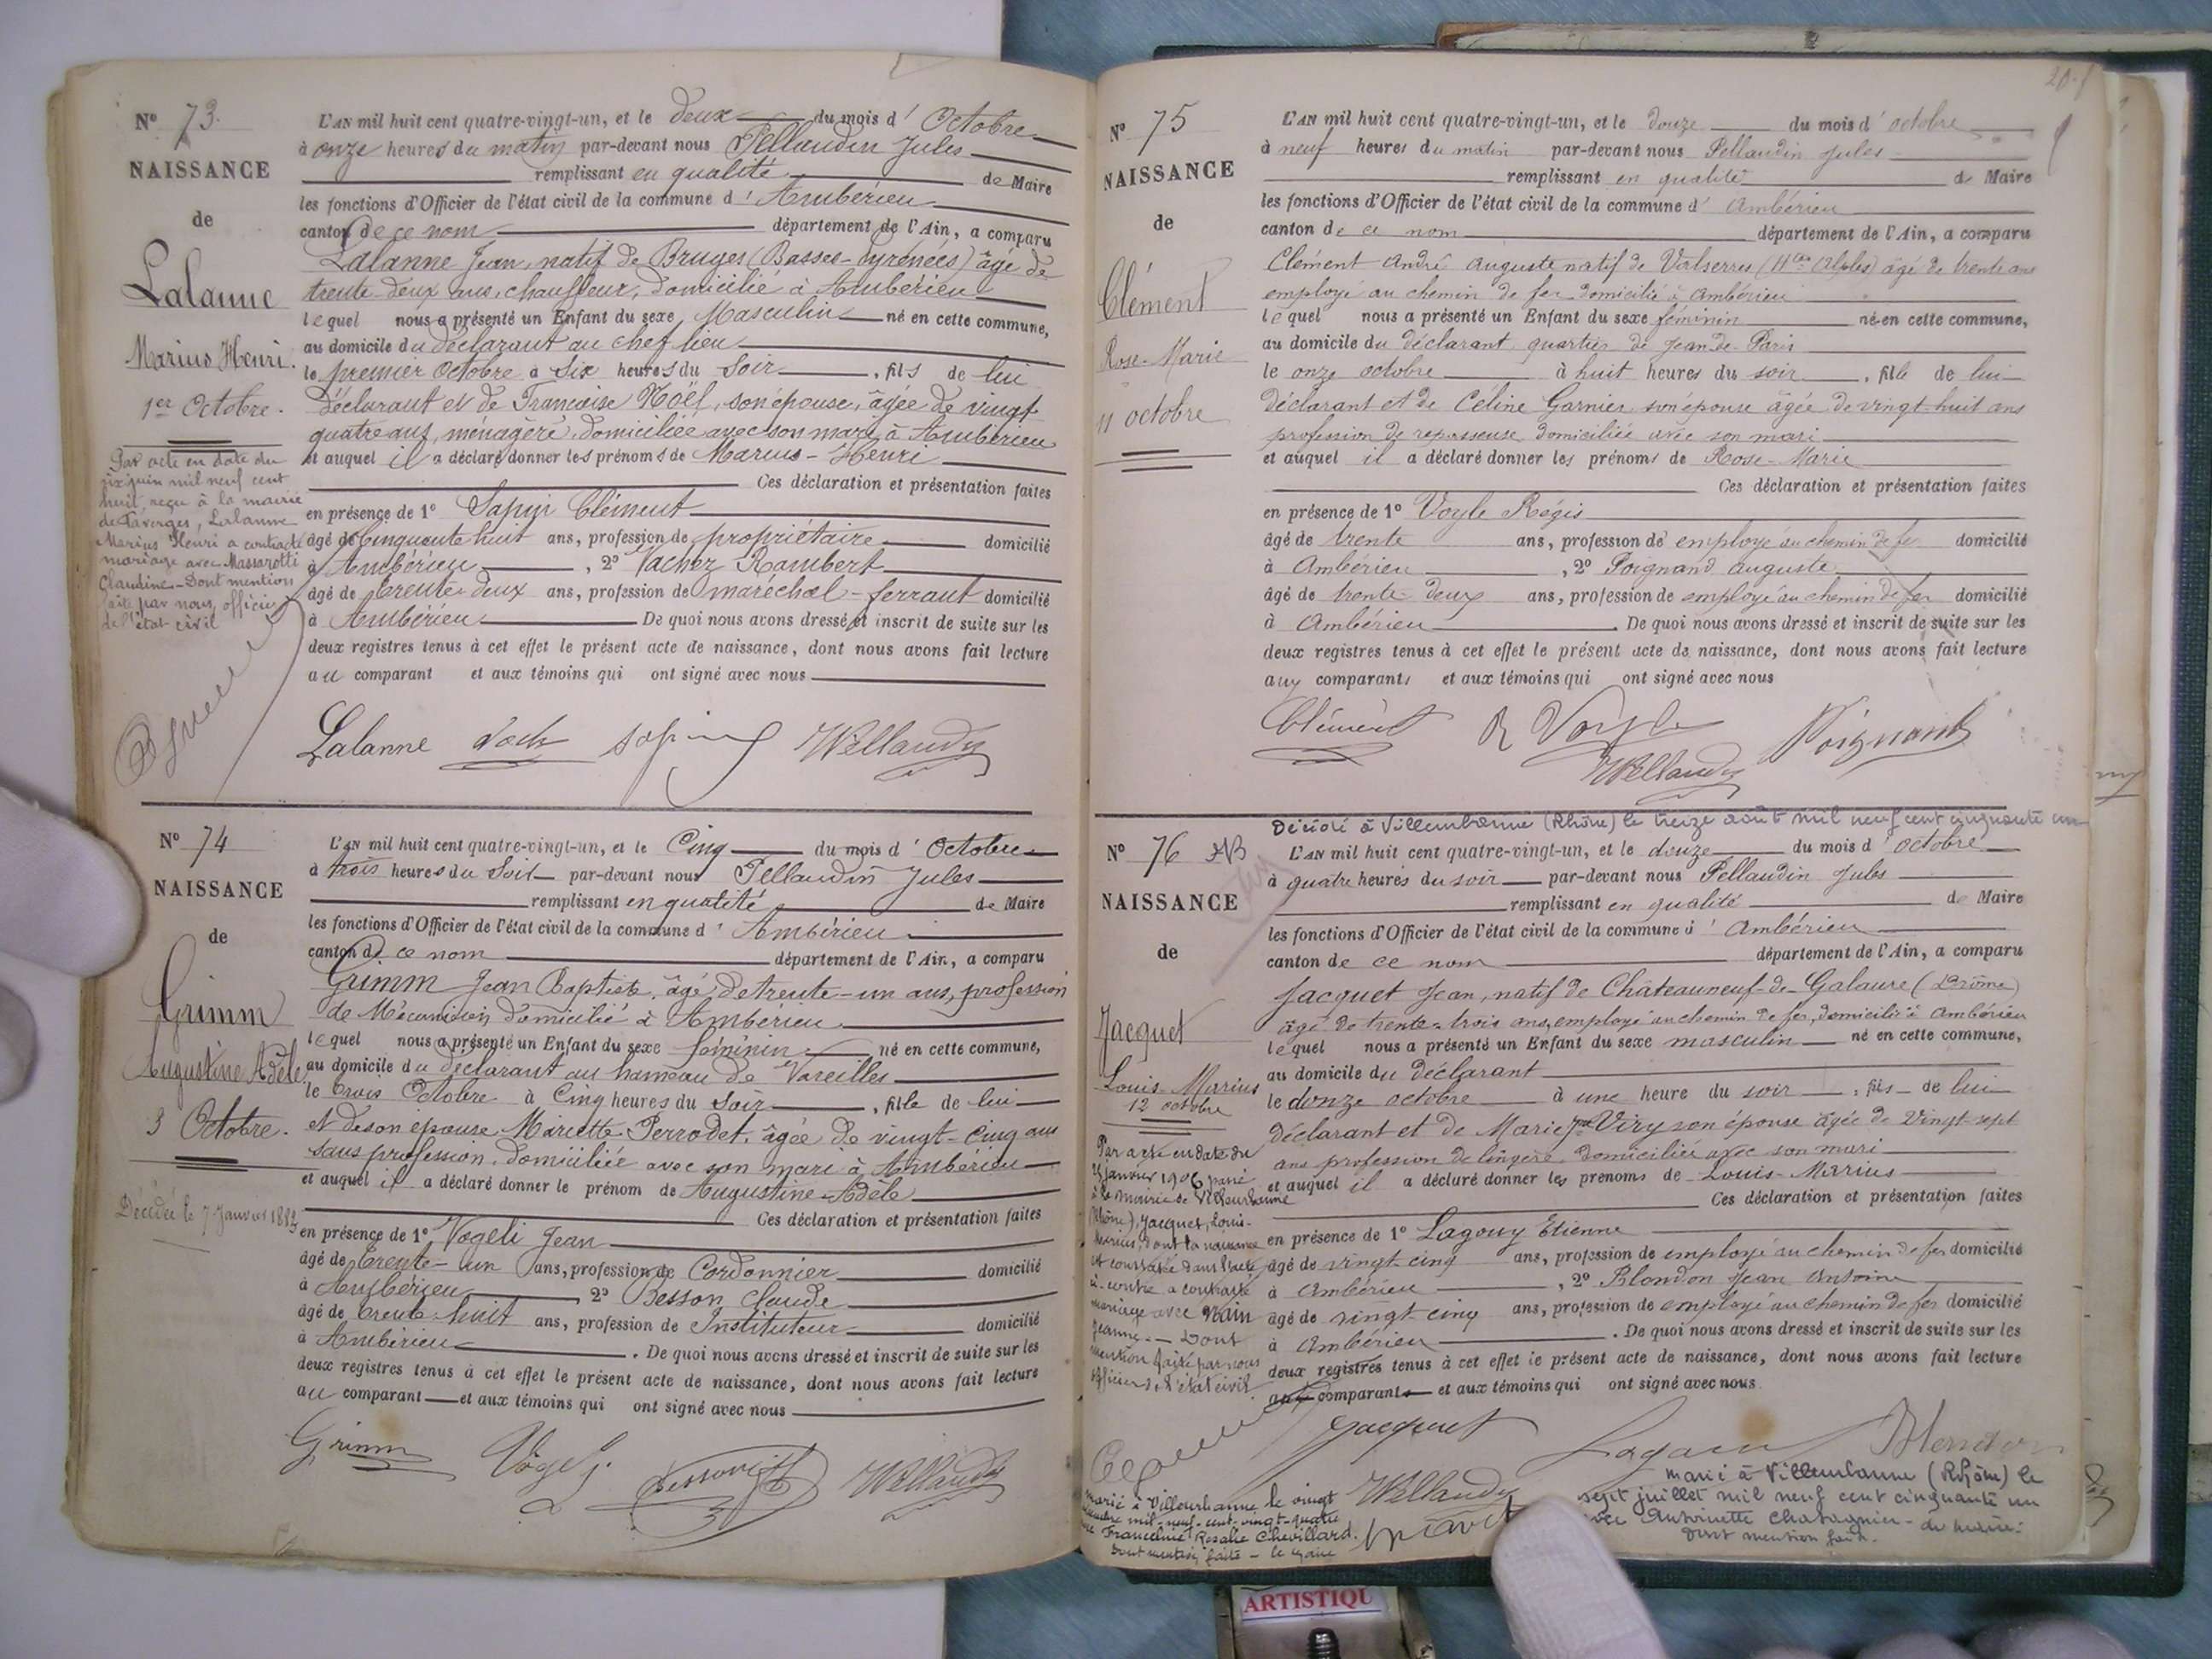 N° 73.
NAISSANCE
de
Lalanne
Marius Henri.
1er Octobre.
Par acte en date du
six juin mil neuf cent
huit, reçu à la mairie
de Faverges, Lalanne
Marius Henri a contracté
mariage avec Massarotti
Claudine - Dont mention
faite par nous officier
de l'état civil
L'AN mil huit cent quatre-vingt-un, et le deux du mois d' Octobre
à onze heures du matin par-devant nous Pellaudin Jules
remplissant en qualité de Maire
les fonctions d'Officier de l'état civil de la commune d' Ambérieu
canton de ce nom département de l'Ain, a comparu
Lalanne Jean, natif de Bruges (Basses-Pyrénées) âgé de
trente-deux ans, chauffeur, domicilié à Ambérieu
lequel nous a présenté un Enfant du sexe Masculin né en cette commune,
au domicile du déclarant au chef lieu
le premier Octobre à six heures du soir, fils de lui
déclarant et de Françoise Noël, son épouse, âgée de vingt
quatre ans, ménagère, domiciliée avec son mari à Ambérieu
et auquel il a déclaré donner les prénoms de Marius-Henri
Ces déclaration et présentation faites
en présence de 1° Sapin Clément
âgé de Cinquante huit ans, profession de propriétaire domicilié
à Ambérieu, 2° Vachez Rambert
âgé de trente deux ans, profession de maréchal-ferrant domicilié
à Ambérieu De quoi nous avons dressé et inscrit de suite sur les
deux registres tenus à cet effet le présent acte de naissance, dont nous avons fait lecture
au comparant et aux témoins qui ont signé avec nous
Lalanne sapin
N° 74
NAISSANCE
de
Grimm
Augustine Adèle
3 Octobre.
Décédée le 7 Janvier
L'AN mil huit cent quatre-vingt-un, et le Cinq du mois d' Octobre
à trois heures du Soir par-devant nous Pellaudin Jules
remplissant en qualité de Maire
les fonctions d'Officier de l'état civil de la commune d' Ambérieu
canton de ce nom département de l'Ain, a comparu
Grimm Jean Baptiste, âgé de trente-un ans, profession
de Mécanicien domicilié à Ambérieu
lequel nous a présenté un Enfant du sexe féminin né en cette commune,
au domicile du déclarant au hameau de Vareilles
le trois Octobre à Cinq heures du Soir, fille de lui
et de son épouse Mariette Perrodet, âgée de vingt-cinq ans
sans profession, domiciliée avec son mari à Ambérieu
et auquel il a déclaré donner le prénom de Augustine-Adèle
Ces déclaration et présentation faites
en présence de 1° Vogeli Jean
âgé de trente-un ans, profession de Cordonnier domicilié
à Ambérieu, 2° Besson Claude
âgé de trente-huit ans, profession de Instituteur domicilié
à Ambérieu. De quoi nous avons dressé et inscrit de suite sur les
deux registres tenus à cet effet le présent acte de naissance, dont nous avons fait lecture
au comparant et aux témoins qui ont signé avec nous
Grimm
N° 75
NAISSANCE
de
Clément
Rose-Marie
11 octobre
L'AN mil huit cent quatre-vingt-un, et le douze du mois d' octobre
à neuf heures du matin par-devant nous Pellaudin Jules
remplissant en qualité de Maire
les fonctions d'Officier de l'état civil de la commune d' Ambérieu
canton de ce nom département de l'Ain, a comparu
Clément André Auguste natif de Valserres (Htes Alpes) âgé de trente ans
employé au chemin de fer domicilié à Ambérieu
lequel nous a présenté un Enfant du sexe féminin né en cette commune,
au domicile du déclarant quartier de Jean-de-Paris
le onze octobre à huit heures du soir, fille de lui
déclarant et de Céline Garnier son épouse âgée de vingt-huit ans
profession de repasseuse domiciliée avec son mari
et auquel il a déclaré donner les prénoms de Rose-Marie
Ces déclaration et présentation faites
en présence de 1° Voyle Régis
âgé de trente ans, profession de employé au chemin de fer domicilié
à Ambérieu, 2° Poignand Auguste
âgé de trente-deux ans, profession de employé au chemin de fer domicilié
à Ambérieu. De quoi nous avons dressé et inscrit de suite sur les
deux registres tenus à cet effet le présent acte de naissance, dont nous avons fait lecture
aux comparants et aux témoins qui ont signé avec nous
Clément R Voyle Poignand
Décédé à Villeurbanne (Rhône) le treize août mil neuf cent cinquante un
N° 76
NAISSANCE
de
Jacquet
Louis-Marius
12 octobre
Par acte en date du
janvier 1906 passé
à la mairie de Villeurbanne
(Rhône), Jacquet, Louis-
Marius, dont la naissance
est constatée dans l'acte
ci-contre a contracté
mariage avec Vain
Jeanne. - Dont
mention faite par nous
officier de l'état civil.
L'AN mil huit cent quatre-vingt-un, et le douze du mois d' octobre
à quatre heures du soir par-devant nous Pellaudin Jules
remplissant en qualité de Maire
les fonctions d'Officier de l'état civil de la commune d' Ambérieu
canton de ce nom département de l'Ain, a comparu
Jacquet Jean, natif de Châteauneuf-de-Galaure (Drôme)
âgé de trente-trois ans, employé au chemin de fer, domicilié à Ambérieu
lequel nous a présenté un Enfant du sexe masculin né en cette commune,
au domicile du déclarant
le douze octobre à une heure du soir, fils de lui
déclarant et de Marie Viry son épouse âgée de vingt-sept
ans profession de lingère domiciliée avec son mari
et auquel il a déclaré donner les prénoms de Louis-Marius
Ces déclaration et présentation faites
en présence de 1° Lagouy Etienne
âgé de vingt-cinq ans, profession de employé au chemin de fer domicilié
à Ambérieu, 2° Blondon Jean Antoine
âgé de vingt-cinq ans, profession de employé au chemin de fer domicilié
à Ambérieu. De quoi nous avons dressé et inscrit de suite sur les
deux registres tenus à cet effet le présent acte de naissance, dont nous avons fait lecture
aux comparants et aux témoins qui ont signé avec nous
Jacquet
marié à Villeurbanne le vingt
mil-neuf-cent-vingt-quatre
Franceline Rosalie Chevillard.
Dont mention faite - le Maire
marié à Villeurbanne (Rhône) le
sept juillet mil neuf cent cinquante un
avec Antoinette Chatagnier - du
Dont mention faite.
ARTISTIQU